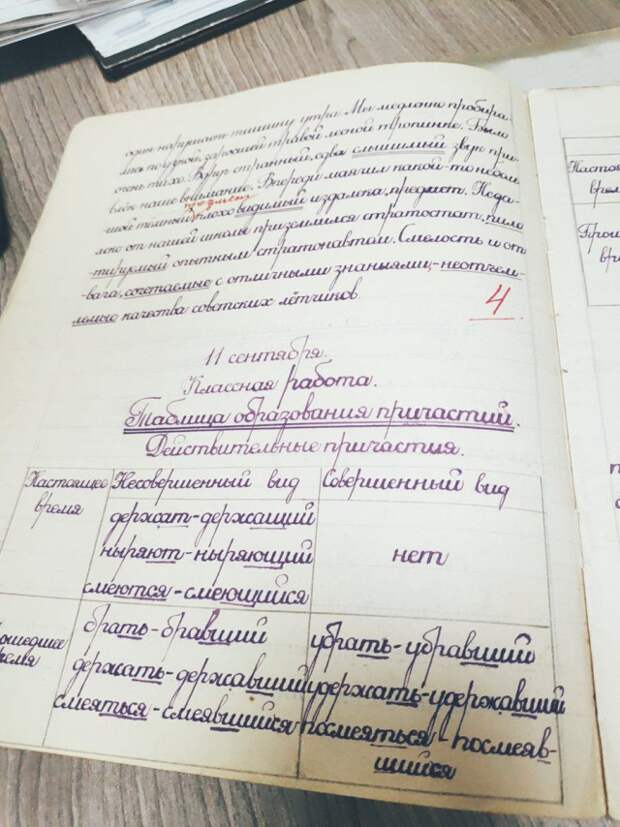 один нарушают тишину утра. Мы медленно пробира-
лись по узкой, заросшей травой лесной тропинке. Было
очень тихо. Вдруг странный, едва слышимый звук при-
влёк наше внимание. Впереди маячил какой-то небол-
предмет
шой тёмный, плохо видимый издалека, предмет. Неда-
леко от нашей школы приземлился стратостат, пило-
тируемый опытным стратонавтом. Смелость и от-
-вага, сочетаемые с отличными знаниями,- неотъем-
лемые качества советских лётчиков.
4
11 сентября.
Классная работа.
Таблица образования причастий.
Действительные причастия.
Настоящее время
Несовершенный вид
Совершенный вид
держат-держащий
ныряют-ныряющий
смеются-смеющийся
нет
прошедшее время
брать-бравший
держать-державший
смеяться-смеявшийся
убрать-убравший
удержать-удержавший
посмеяться-посмеяв-
шийся
Настоя
врем
Прош
вр